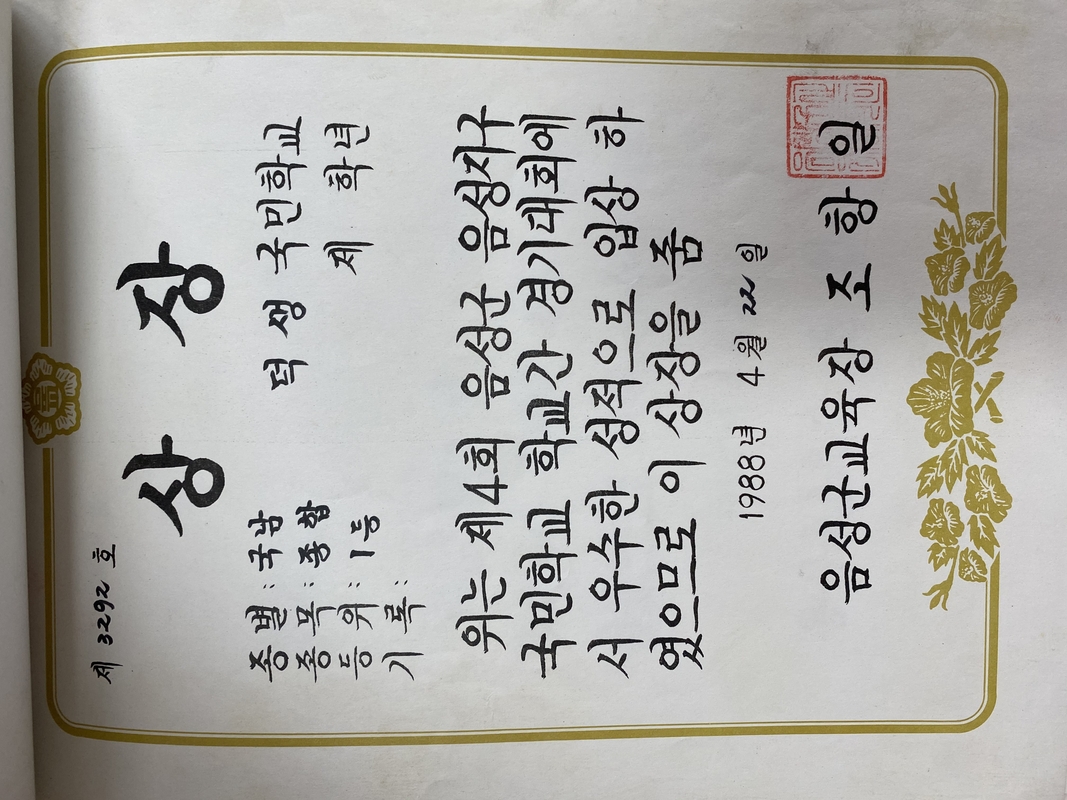 제 3292 호
상 장
종별: 국남 덕생 국민학교
종목: 종합 제 학년
등위: 1등
기록:
위는 제4회 음성군 음성지구
국민학교 학교간 경기대회에
서 우수한 성적으로 입상 하
였으므로 이 상장을 줌
1988년 4월 22일
음성군교육장 조 항 일